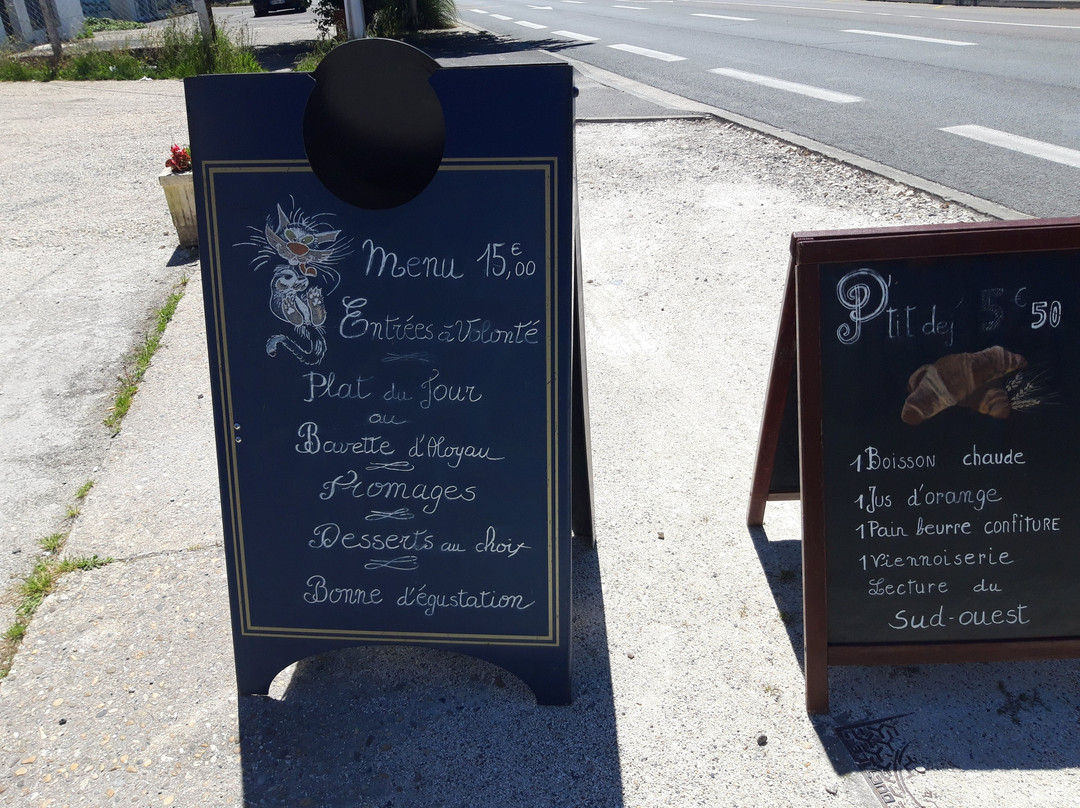 Menu 15,€00
Entrées à Volonté
Plat du Jour
ou
Bavette d'Aloyau
Fromages
Desserts au choix
Bonne d'égustation
P'tit dej 5€50
1 Boisson chaude
1 Jus d'orange
1 Pain beurre confiture
1 Viennoiserie
Lecture du
Sud-ouest